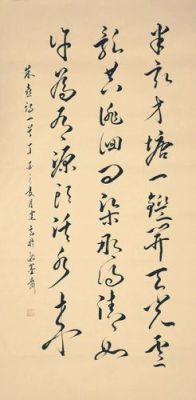 半畝方塘一鑑開天光雲
影共徘徊問渠那得清如
許為有源頭活水來
朱熹詩一首丁亥之夏月